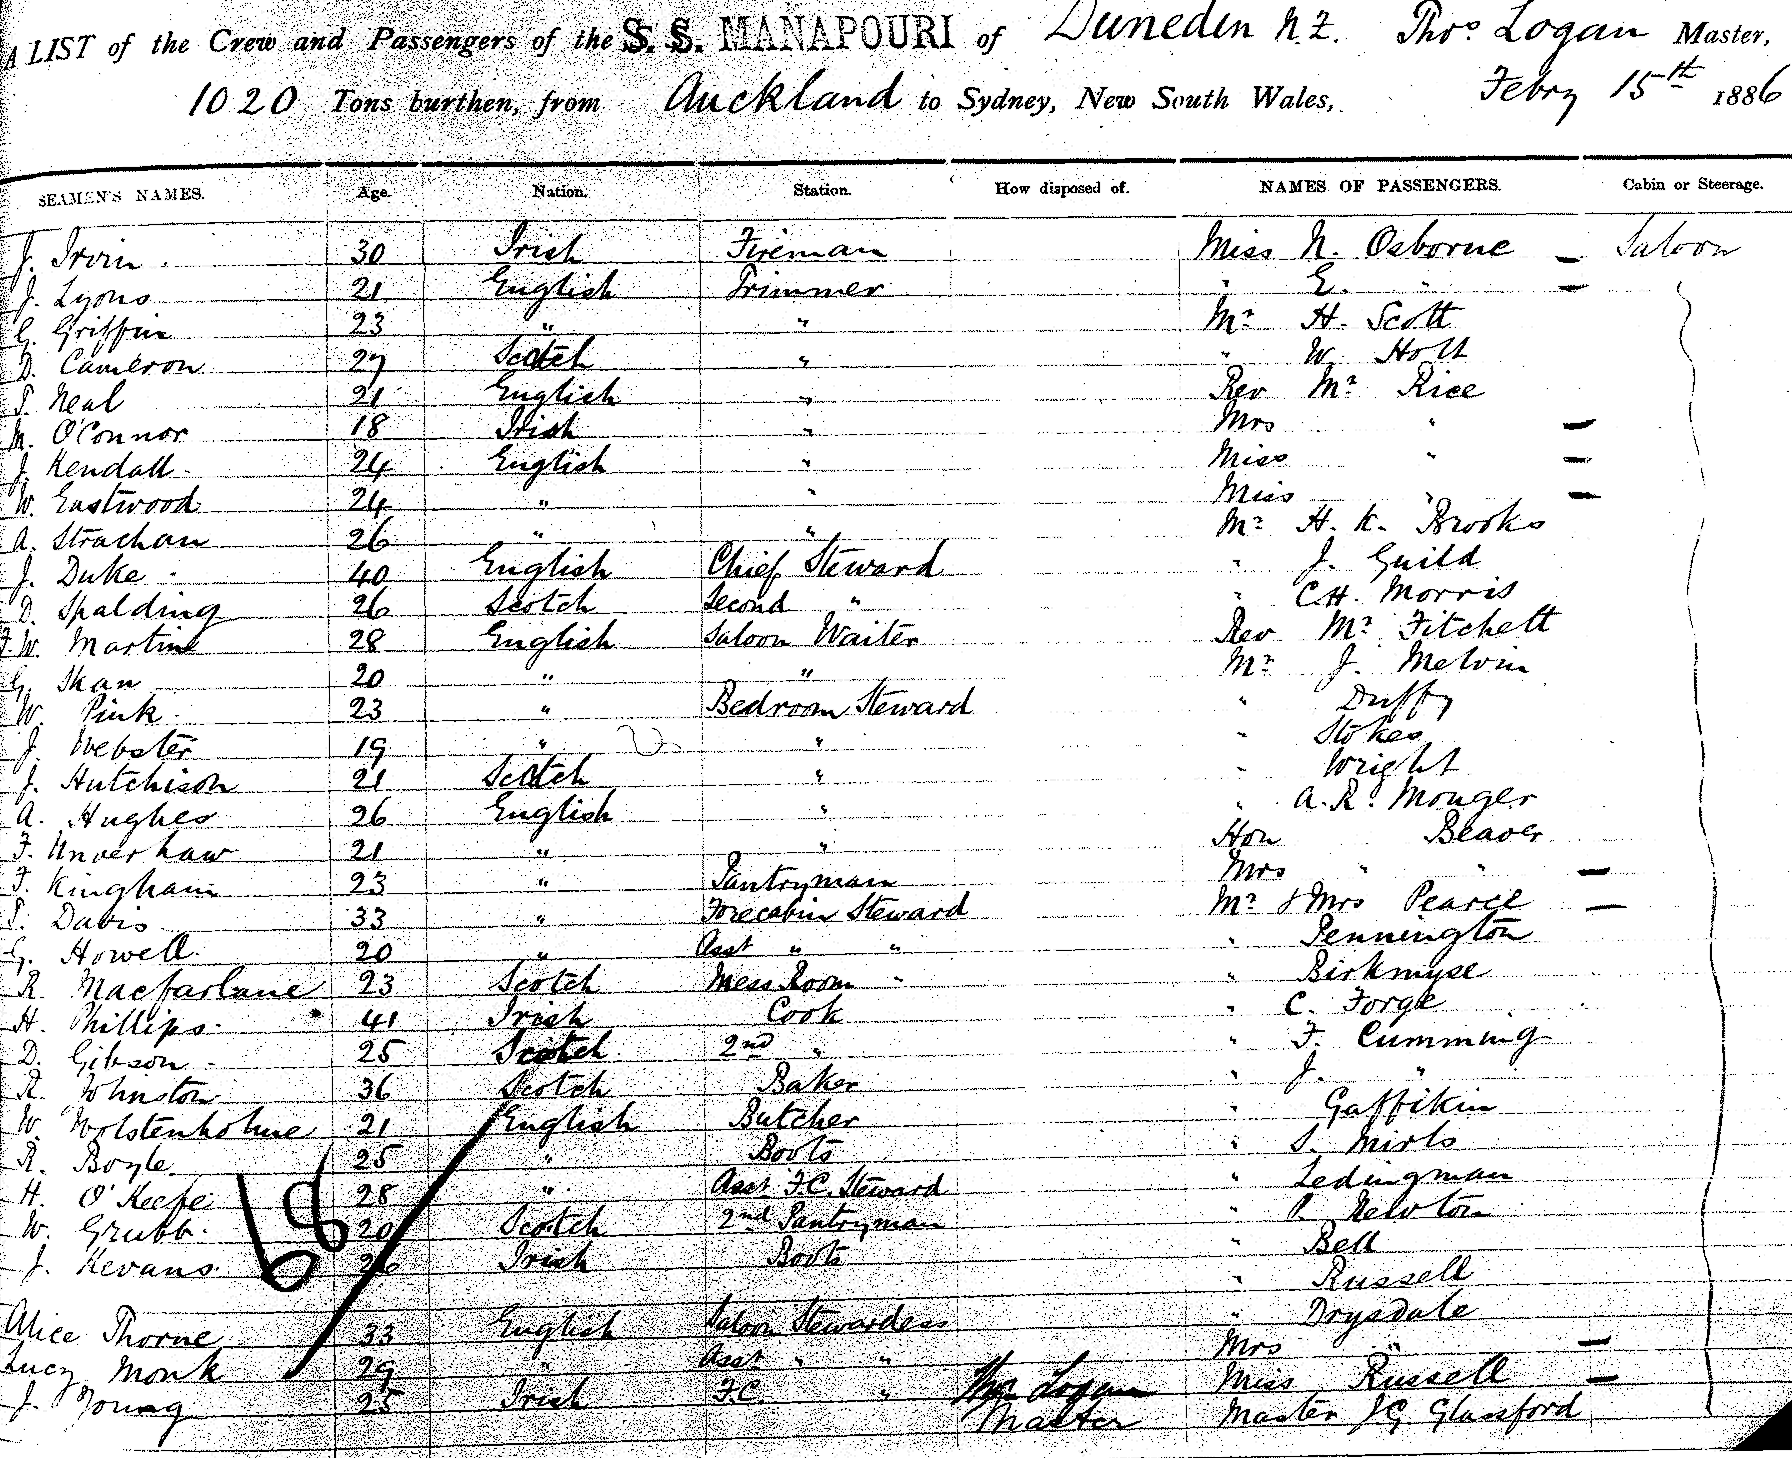 A LIST of the Crew and Passengers of the S. S. MANAPOURI of Dunedin N.Z. Thos Logan Master,
1020 Tons burthen, from Auckland to Sydney, New South Wales, Febry 15th 1886
SEAMEN'S NAMES. Age. Nation. Station. How disposed of. NAMES OF PASSENGERS. Cabin or Steerage.
J. Irvin 30 Irish Fireman Miss N. Osborne — Saloon
J. Lyons 21 English Trimmer " E. " —
G. Griffin 23 " " Mr H. Scott
D. Cameron 27 Scotch " " W Holt
T. Neal 21 English " Rev Mr Rice
M. O'Connor 18 Irish " Mrs " —
J. Kendall 24 English " Miss " —
W. Eastwood 24 " " Miss " —
A. Strachan 26 " " Mr H. K. Brooks
J. Duke 40 English Chief Steward " J. Guild
D. Spalding 26 Scotch Second " " C.H. Morris
F.W. Martin 28 English Saloon Waiter Rev Mr Fitchett
G. Skan 20 " " Mr J. Melvin
W. Pink 23 " Bedroom Steward " Duffy
J. Webster 19 " " " Stokes
J. Hutchison 21 Scotch " " Wright
A. Hughes 26 English " " A. R. Monger
F. Unverhaw 21 " " Hon Beaver
F. Kingham 23 " Pantryman Mrs " " —
T. Davis 33 " Forecabin Steward Mr & Mrs Pearce —
G. Howell 20 " Asst " " " Pennington
R Macfarlane 23 Scotch Mess Room " " Birkmyse
H. Phillips 41 Irish Cook " C. Forge
D. Gibson 25 Scotch 2nd " " F. Cumming
R. Johnston 36 Scotch Baker " J. "
W. Wolstenholme 21 English Butcher " Gaffikin
R. Boyle 25 " Boots " S. Mirls
H. O'Keefe 28 " Asst F.C. Steward " Ledingman
W. Grubb 20 Scotch 2nd Pantryman " P. Newton
J. Kevans 26 Irish Boots " Bell
68 " Russell
Alice Thorne 33 English Saloon Stewardess " Drysdale
Lucy Monk 29 " Asst " " Mrs " —
J. Young 25 Irish F.C. " Thos Logan Miss Russell —
Master Master J G Glassford